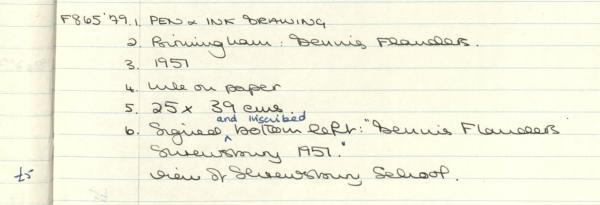 F865'79.1. PEN & INK DRAWING
2. Birmingham: Dennis Flanders.
3. 1951
4. Ink on paper
5. 25 x 39 cms.
6. Signed and inscribed bottom left: "Dennis Flanders
Shrewsbury 1951."
£5 View of Shrewsbury School.